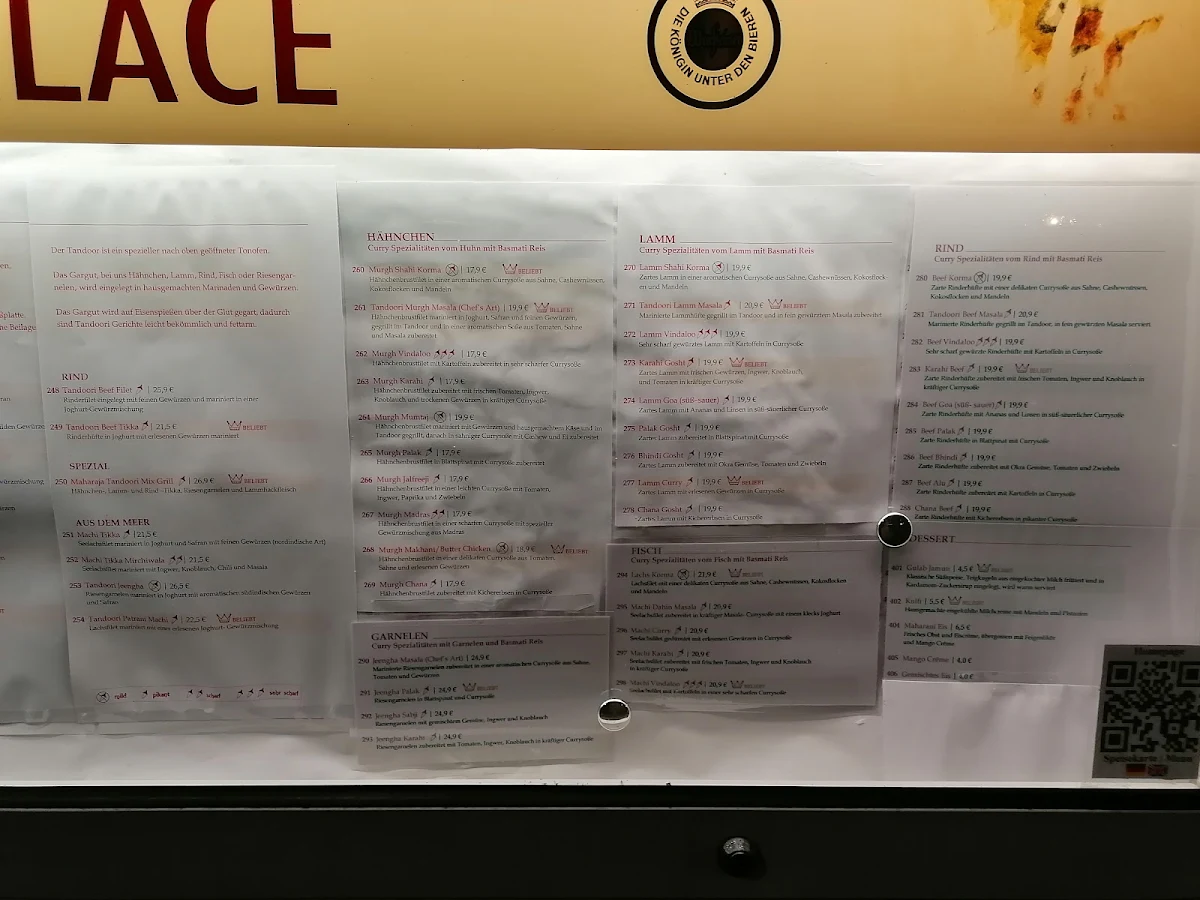 LACE
DIE KÖNIGIN UNTER DEN BIEREN
Der Tandoor ist ein spezieller nach oben geöffneter Tonofen.
Das Gargut, bei uns Hähnchen, Lamm, Rind, Fisch oder Riesengar-
nelen, wird eingelegt in hausgemachten Marinaden und Gewürzen.
Das Gargut wird auf Eisenspießen über der Glut gegart, dadurch
sind Tandoori Gerichte leicht bekömmlich und fettarm.
RIND
248 Tandoori Beef Filet | 25,9 €
Rinderfilet eingelegt mit feinen Gewürzen und mariniert in einer
Joghurt-Gewürzmischung
249 Tandoori Beef Tikka | 21,5 € BELIEBT
Rinderhüfte in Joghurt mit erlesenen Gewürzen mariniert
SPEZIAL
250 Maharaja Tandoori Mix-Grill | 26,9 € BELIEBT
Hähnchen-, Lamm- und Rind -Tikka, Riesengarnelen und Lammhackfleisch
AUS DEM MEER
251 Machi Tikka | 21,5 €
Seelachsfilet mariniert in Joghurt und Safran mit feinen Gewürzen (nordindische Art)
252 Machi Tikka Mirchiwala | 21,5 €
Seelachsfilet mariniert mit Ingwer, Knoblauch, Chili und Masala
253 Tandoori Jeengha | 26,5 €
Riesengarnelen mariniert in Joghurt mit aromatischen südindischen Gewürzen
und Safran
254 Tandoori Patran Machi | 22,5 € BELIEBT
Lachsfilet mariniert mit einer erlesenen Joghurt- Gewürzmischung
mild pikant scharf sehr scharf
HÄHNCHEN
Curry Spezialitäten vom Huhn mit Basmati Reis
260 Murgh Shahi Korma | 17,9 € BELIEBT
Hähnchenbrustfilet in einer aromatischen Currysoße aus Sahne, Cashewnüssen,
Kokosflocken und Mandeln
261 Tandoori Murgh Masala (Chef's Art) | 19,9 € BELIEBT
Hähnchenbrustfilet mariniert in Joghurt, Safran und feinen Gewürzen,
gegrillt im Tandoor und in einer aromatischen Soße aus Tomaten, Sahne
und Masala zubereitet
262 Murgh Vindaloo | 17,9 €
Hähnchenbrustfilet mit Kartoffeln zubereitet in sehr scharfer Currysoße
263 Murgh Karahi | 17,9 €
Hähnchenbrustfilet zubereitet mit frischen Tomaten, Ingwer,
Knoblauch und trockenen Gewürzen in kräftiger Currysoße
264 Murgh Mumtaj | 19,9 €
Hähnchenbrustfilet mariniert mit Gewürzen und hausgemachtem Käse und im
Tandoor gegrillt, danach in sahniger Currysoße mit Cashew und Ei zubereitet
265 Murgh Palak | 17,9 €
Hähnchenbrustfilet in Blattspinat mit Currysoße zubereitet
266 Murgh Jalfreeji | 17,9 €
Hähnchenbrustfilet in einer leichten Currysoße mit Tomaten,
Ingwer, Paprika und Zwiebeln
267 Murgh Madras | 17,9 €
Hähnchenbrustfilet in einer scharfen Currysoße mit spezieller
Gewürzmischung aus Madras
268 Murgh Makhani/Butter Chicken | 18,9 € BELIEBT
Hähnchenbrustfilet in einer delikaten Currysoße aus Tomaten,
Sahne und erlesenen Gewürzen
269 Murgh Chana | 17,9 €
Hähnchenbrustfilet zubereitet mit Kichererbsen in Currysoße
GARNELEN
Curry Spezialitäten mit Garnelen und Basmati Reis
290 Jeengha Masala (Chef's Art) | 24,9 €
Marinierte Riesengarnelen zubereitet in einer aromatischen Currysoße aus Sahne,
Tomaten und Gewürzen
291 Jeengha Palak | 24,9 € BELIEBT
Riesengarnelen in Blattspinat und Currysoße
292 Jeengha Sabji | 24,9 €
Riesengarnelen mit gemischtem Gemüse, Ingwer und Knoblauch
293 Jeengha Karahi | 24,9 €
Riesengarnelen zubereitet mit Tomaten, Ingwer, Knoblauch in kräftiger Currysoße
LAMM
Curry Spezialitäten vom Lamm mit Basmati Reis
270 Lamm Shahi Korma | 19,9 €
Zartes Lamm in einer aromatischen Currysoße aus Sahne, Cashewnüssen, Kokosflock-
en und Mandeln
271 Tandoori Lamm Masala | 20,9 € BELIEBT
Marinierte Lammhüfte gegrillt im Tandoor und in fein gewürzten Masala zubereitet
272 Lamm Vindaloo | 19,9 €
Sehr scharf gewürztes Lamm mit Kartoffeln in Currysoße
273 Karahi Gosht | 19,9 € BELIEBT
Zartes Lamm mit frischen Gewürzen, Ingwer, Knoblauch
und Tomaten in kräftiger Currysoße
274 Lamm Goa (süß-sauer) | 19,9 €
Zartes Lamm mit Ananas und Linsen in süß-säuerlicher Currysoße
275 Palak Gosht | 19,9 €
Zartes Lamm zubereitet in Blattspinat mit Currysoße
276 Bhindi Gosht | 19,9 €
Zartes Lamm zubereitet mit Okra Gemüse, Tomaten und Zwiebeln
277 Lamm Curry | 19,9 € BELIEBT
Zartes Lamm mit erlesenen Gewürzen in Currysoße
278 Chana Gosht | 19,9 €
Zartes Lamm mit Kichererbsen in Currysoße
FISCH
Curry Spezialitäten vom Fisch mit Basmati Reis
294 Lachs Korma | 21,9 € BELIEBT
Lachsfilet mit einer delikaten Currysoße aus Sahne, Cashewnüssen, Kokosflocken
und Mandeln
295 Machi Dahin Masala | 20,9 €
Seelachsfilet zubereitet in kräftiger Masala- Currysoße mit einem Klecks Joghurt
296 Machi Curry | 20,9 €
Seelachsfilet gedünstet mit erlesenen Gewürzen in Currysoße
297 Machi Karahi | 20,9 €
Seelachsfilet zubereitet mit frischen Tomaten, Ingwer und Knoblauch
in kräftiger Currysoße
298 Machi Vindaloo | 20,9 € BELIEBT
Seelachsfilet mit Kartoffeln in einer sehr scharfen Currysoße
RIND
Curry Spezialitäten vom Rind mit Basmati Reis
280 Beef Korma | 19,9 €
Zarte Rinderhüfte mit einer delikaten Currysoße aus Sahne, Cashewnüssen,
Kokosflocken und Mandeln
281 Tandoori Beef Masala | 20,9 €
Marinierte Rinderhüfte gegrillt im Tandoor, in fein gewürzten Masala serviert
282 Beef Vindaloo | 19,9 €
Sehr scharf gewürzte Rinderhüfte mit Kartoffeln in Currysoße
283 Karahi Beef | 19,9 € BELIEBT
Zarte Rinderhüfte zubereitet mit frischen Tomaten, Ingwer und Knoblauch in
kräftiger Currysoße
284 Beef Goa (süß-sauer) | 19,9 €
Zarte Rinderhüfte mit Ananas und Linsen in süß-säuerlicher Currysoße
285 Beef Palak | 19,9 €
Zarte Rinderhüfte in Blattspinat mit Currysoße
286 Beef Bhindi | 19,9 €
Zarte Rinderhüfte zubereitet mit Okra Gemüse, Tomaten und Zwiebeln
287 Beef Alu | 19,9 €
Zarte Rinderhüfte zubereitet mit Kartoffeln in Currysoße
288 Chana Beef | 19,9 €
Zarte Rinderhüfte mit Kichererbsen in pikanter Currysoße
DESSERT
401 Gulab Jamun | 4,5 € BELIEBT
Klassische Süßspeise, Teigkugeln aus eingekochter Milch frittiert und in
Kardamom-Zuckersirup eingelegt, wird warm serviert
402 Kulfi | 5,5 € BELIEBT
Hausgemachte eingekühlte Milch mit Mandeln und Pistazien
404 Maharani Eis | 6,5 €
Frisches Obst und Eiscréme, übergossen mit
und Mango Creme
405 Mango Créme | 4,0 €
406 Gemischtes Eis | 4,0 €
Homepage
Speisekarte / Menu